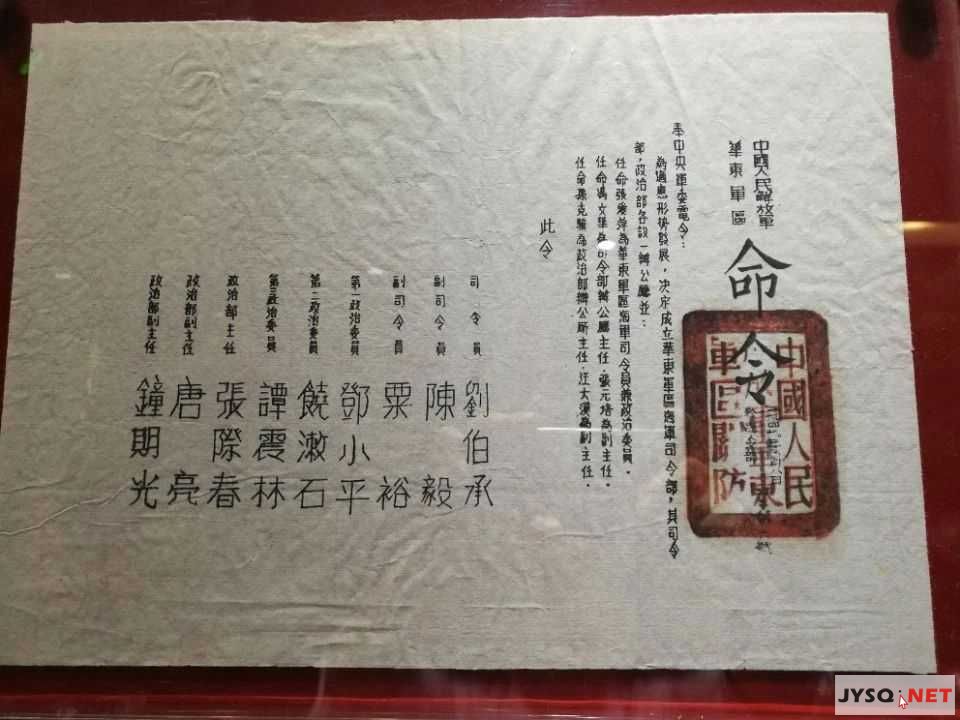 中國人民解放軍
華東軍區
命令
中國人民
華東
軍區關防
奉中央軍委電令:
為適應形勢發展,决定成立華東軍區海軍司令部,其司令
部,政治部各設一辦公廳並:
任命張愛萍為華東軍區海軍司令員兼政治委員.
任命馮文華為司令部辦公廳主任.張元培為副主任.
任命孫克驥為政治部辦公所主任.汪大漠為副主任.
此令
司令員 劉伯承
副司令員 陳毅
副司令員 粟裕
第一政治委員 鄧小平
第二政治委員 饒漱石
第三政治委員 譚震林
政治部主任 張際春
政治部副主任 唐亮
政治部副主任 鐘期光
JYSQ.NET